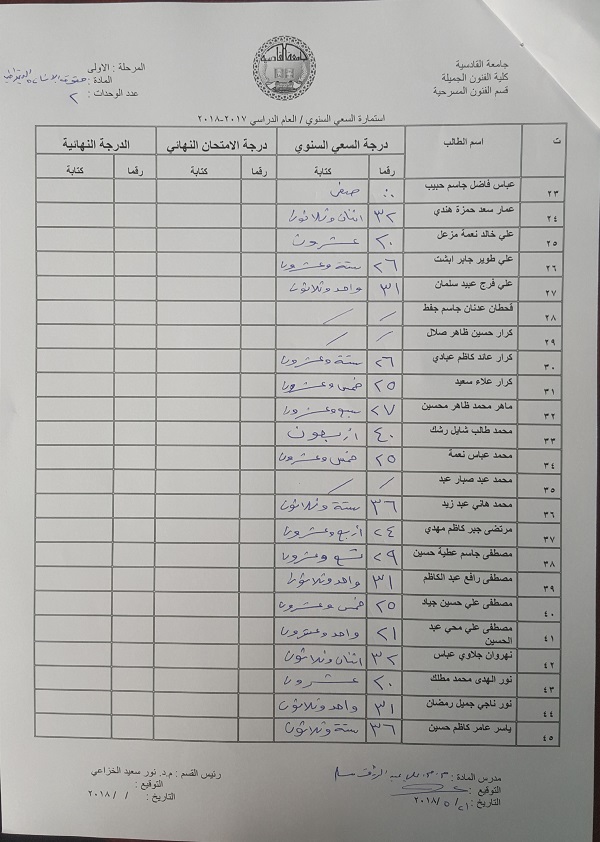 جامعة القادسية
كلية الفنون الجميلة
قسم الفنون المسرحية
جامعة القادسية
المرحلة : الاولى
المادة : حقوق الانسان
عدد الوحدات : ٢
استمارة السعي السنوي / العام الدراسي ٢٠١٧-٢٠١٨
ت اسم الطالب درجة السعي السنوي درجة الامتحان النهائي الدرجة النهائية
رقما كتابة رقما كتابة رقما كتابة
٢٣ عباس فاضل جاسم حبيب صفر
٢٤ عمار سعد حمزة هندي ٣٢ اثنان وثلاثون
٢٥ علي خالد نعمة مزعل ٢٠ عشرون
٢٦ علي طوير جابر ابشت ٢٦ ستة وعشرون
٢٧ علي فرج عبيد سلمان ٣١ واحد وثلاثون
٢٨ قحطان عدنان جاسم جفط / /
٢٩ كرار حسين ظاهر صلال / /
٣٠ كرار عائد كاظم عبادي ٢٦ ستة وعشرون
٣١ كرار علاء سعيد ٢٥ خمس وعشرون
٣٢ ماهر محمد ظاهر محسين ٢٧ سبع وعشرون
٣٣ محمد طالب شايل رشك ٤٠ اربعون
٣٤ محمد عباس نعمة ٢٥ خمس وعشرون
٣٥ محمد عبد صبار عبد / /
٣٦ محمد هاني عبد زيد ٣٦ ستة وثلاثون
٣٧ مرتضى جبر كاظم مهدي ٢٤ أربع وعشرون
٣٨ مصطفى جاسم عطية حسين ٢٩ تسع وعشرون
٣٩ مصطفى رافع عبد الكاظم ٣١ واحد وثلاثون
٤٠ مصطفى علي حسين جياد ٢٥ خمس وعشرون
٤١ مصطفى علي محي عبد ٢١ واحد وعشرون
الحسين
٤٢ نهروان جلاوي عباس ٣٢ اثنان وثلاثون
٤٣ نور الهدى محمد مطلك ٢٠ عشرون
٤٤ نور ناجي جميل رمضان ٣١ واحد وثلاثون
٤٥ ياسر عامر كاظم حسين ٣٦ ستة وثلاثون
مدرس المادة :
التوقيع :
التاريخ : ٢١ / ٥ / ٢٠١٨
رئيس القسم : م.د. نور سعيد الخزاعي
التوقيع :
التاريخ : / / ٢٠١٨